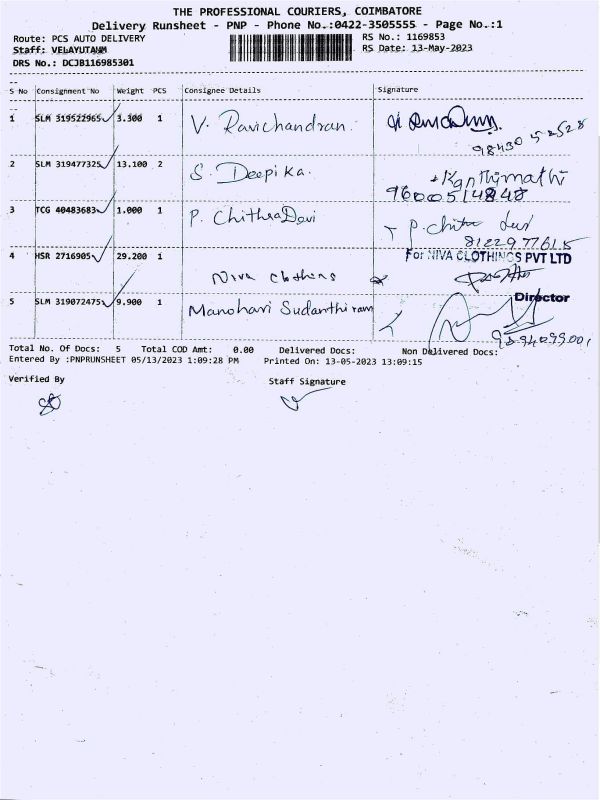 THE PROFESSIONAL COURIERS, COIMBATORE
Delivery Runsheet - PNP - Phone No.:0422-3505555 - Page No.:1
Route: PCS AUTO DELIVERY RS No.: 1169853
Staff: VELAYUTAHM RS Date: 13-May-2023
DRS No.: DCJB116985301
S No Consignment No Weight PCS Consignee Details Signature
1 SLM 319522965 3.300 1 V. Ravichandran.
98430 52528
2 SLM 319477325 13.100 2 S. Deepika.
9600514848
3 TCG 40483683 1.000 1 P. Chithra Devi P. chitra devi
8122977615
4 HSR 2716905 29.200 1 Niva clothins For NIVA CLOTHINGS PVT LTD
Director
5 SLM 319072475 9.900 1 Manohari Sudanthiram
Total No. Of Docs: 5 Total COD Amt: 0.00 Delivered Docs: Non Delivered Docs:
Entered By :PNPRUNSHEET 05/13/2023 1:09:28 PM Printed On: 13-05-2023 13:09:15
Verified By Staff Signature